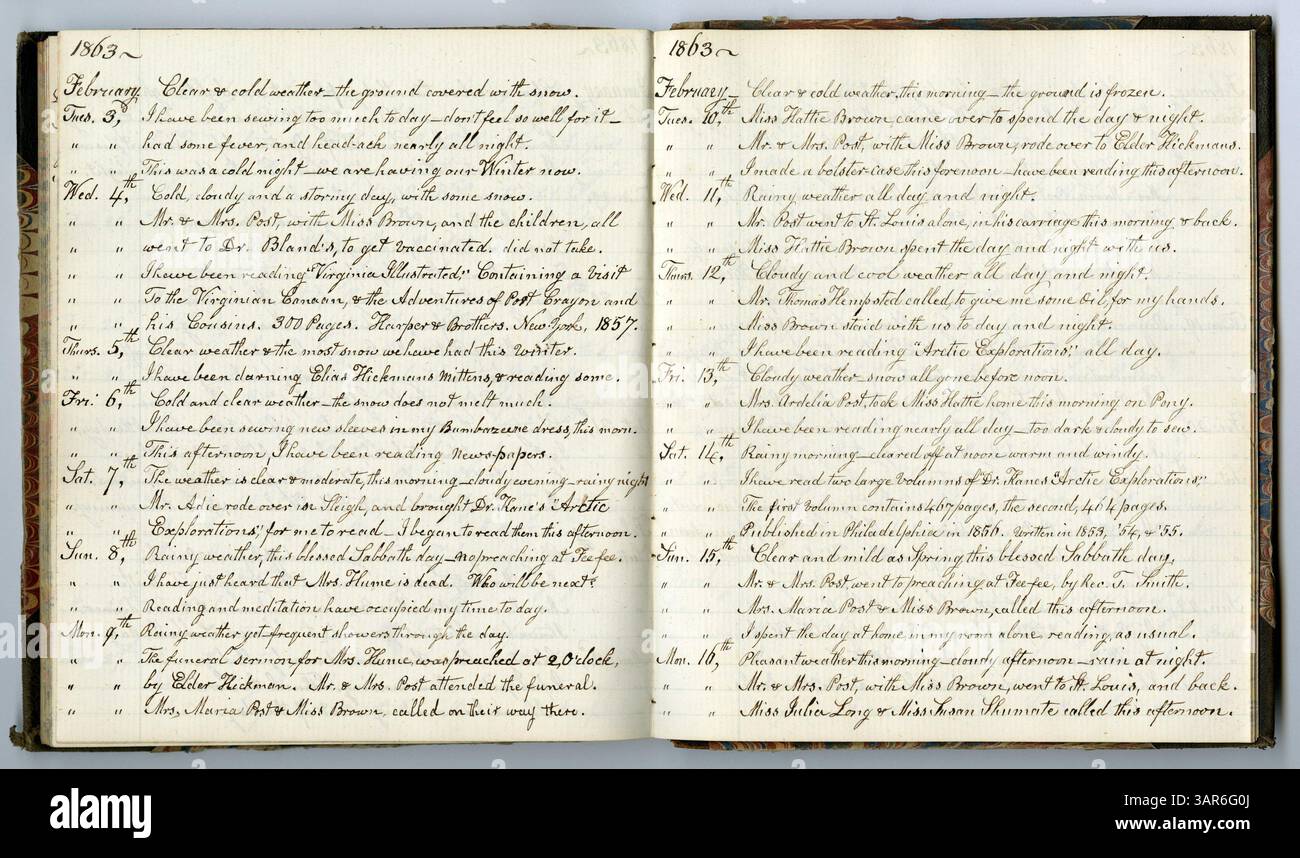 1863~
February Clear & cold weather–the ground covered with snow.
Tues. 3,d I have been sewing too much to day–don't feel so well for it–
" " had some fever, and head-ach nearly all night.
" " This was a cold night–we are having our Winter now.
Wed. 4,th Cold, cloudy and a stormy day, with some snow.
" " Mr. & Mrs. Post, with Miss Brown, and the children, all
" " went to Dr. Bland's, to get vaccinated. did not take.
" " I have been reading "Virginia Illustrated," Containing a Visit
" " To the Virginian Canaan, & the Adventures of Port Crayon and
" " his Cousins. 300 Pages. Harper & Brothers. New-York, 1857.
Thurs. 5,th Clear weather & the most snow we have had this Winter.
" " I have been darning Elias Hickmans Mittens, & reading some.
Fri. 6,th Cold and clear weather–the snow does not melt much.
" " I have been sewing new sleeves in my Bumbazeene dress, this morn.
" " This afternoon, I have been reading News-papers.
Sat. 7,th The weather is clear & moderate, this morning–cloudy evening–rainy night
" " Mr. Adie rode over in Sleigh, and brought Dr. Kane's "Arctic
" " Explorations," for me to read–I began to read them this afternoon.
Sun. 8,th Rainy weather, this blessed Sabbath day–no preaching at Feefee.
" " I have just heard that Mrs. Hume is dead. Who will be next?
" " Reading and meditation have occupied my time to day.
Mon. 9,th Rainy weather yet–frequent showers through the day.
" " The funeral sermon for Mrs. Hume, was preached at 2, O'clock,
" " by Elder Hickman. Mr. & Mrs. Post attended the funeral.
" " Mrs. Maria Post & Miss Brown, called on their way there.
1863~
February– Clear & cold weather, this morning–the ground is frozen.
Tues. 10,th Miss Hattie Brown, came over to spend the day & night.
" " Mr. & Mrs. Post, with Miss Brown, rode over to Elder Hickmans.
" " I made a bolster-case this forenoon–have been reading this afternoon.
Wed. 11,th Rainy weather all day and night.
" " Mr. Post went to St. Louis alone, in his carriage this morning & back.
" " Miss Hattie Brown spent the day and night with us.
Thurs. 12,th Cloudy and cool weather all day and night.
" " Mr. Thomas Hempsted called, to give me some Oil, for my hands.
" " Miss Brown staid with us to day and night.
" " I have been reading "Arctic Explorations," all day.
Fri. 13,th Cloudy weather–snow all gone before noon.
" " Mrs. Ardelia Post, took Miss Hattie home this morning on Pony.
" " I have been reading nearly all day–too dark & cloudy to sew.
Sat. 14,th Rainy morning–cleared off at noon warm and windy.
" " I have read two large Volumns of "Dr. Kanes "Arctic Explorations,"
" " The first Volumn contains 467 pages, the second, 464 pages.
" " Published in Philadelphia in 1856. Written in 1853, '54, & '55.
Sun. 15,th Clear and mild as Spring this blessed Sabbath day.
" " Mr. & Mrs. Post went to preaching at Feefee, by Rev. T. Smith.
" " Mrs. Maria Post & Miss Brown, called this afternoon.
" " I spent the day at home in my room alone reading, as usual.
Mon. 16,th Pleasant weather this morning–cloudy afternoon–rain at night.
" " Mr. & Mrs. Post, with Miss Brown, went to St. Louis, and back.
" " Miss Julia Long & Miss Susan Shumate called this afternoon.
alamy
Image ID: 3AR6G0J
www.alamy.com